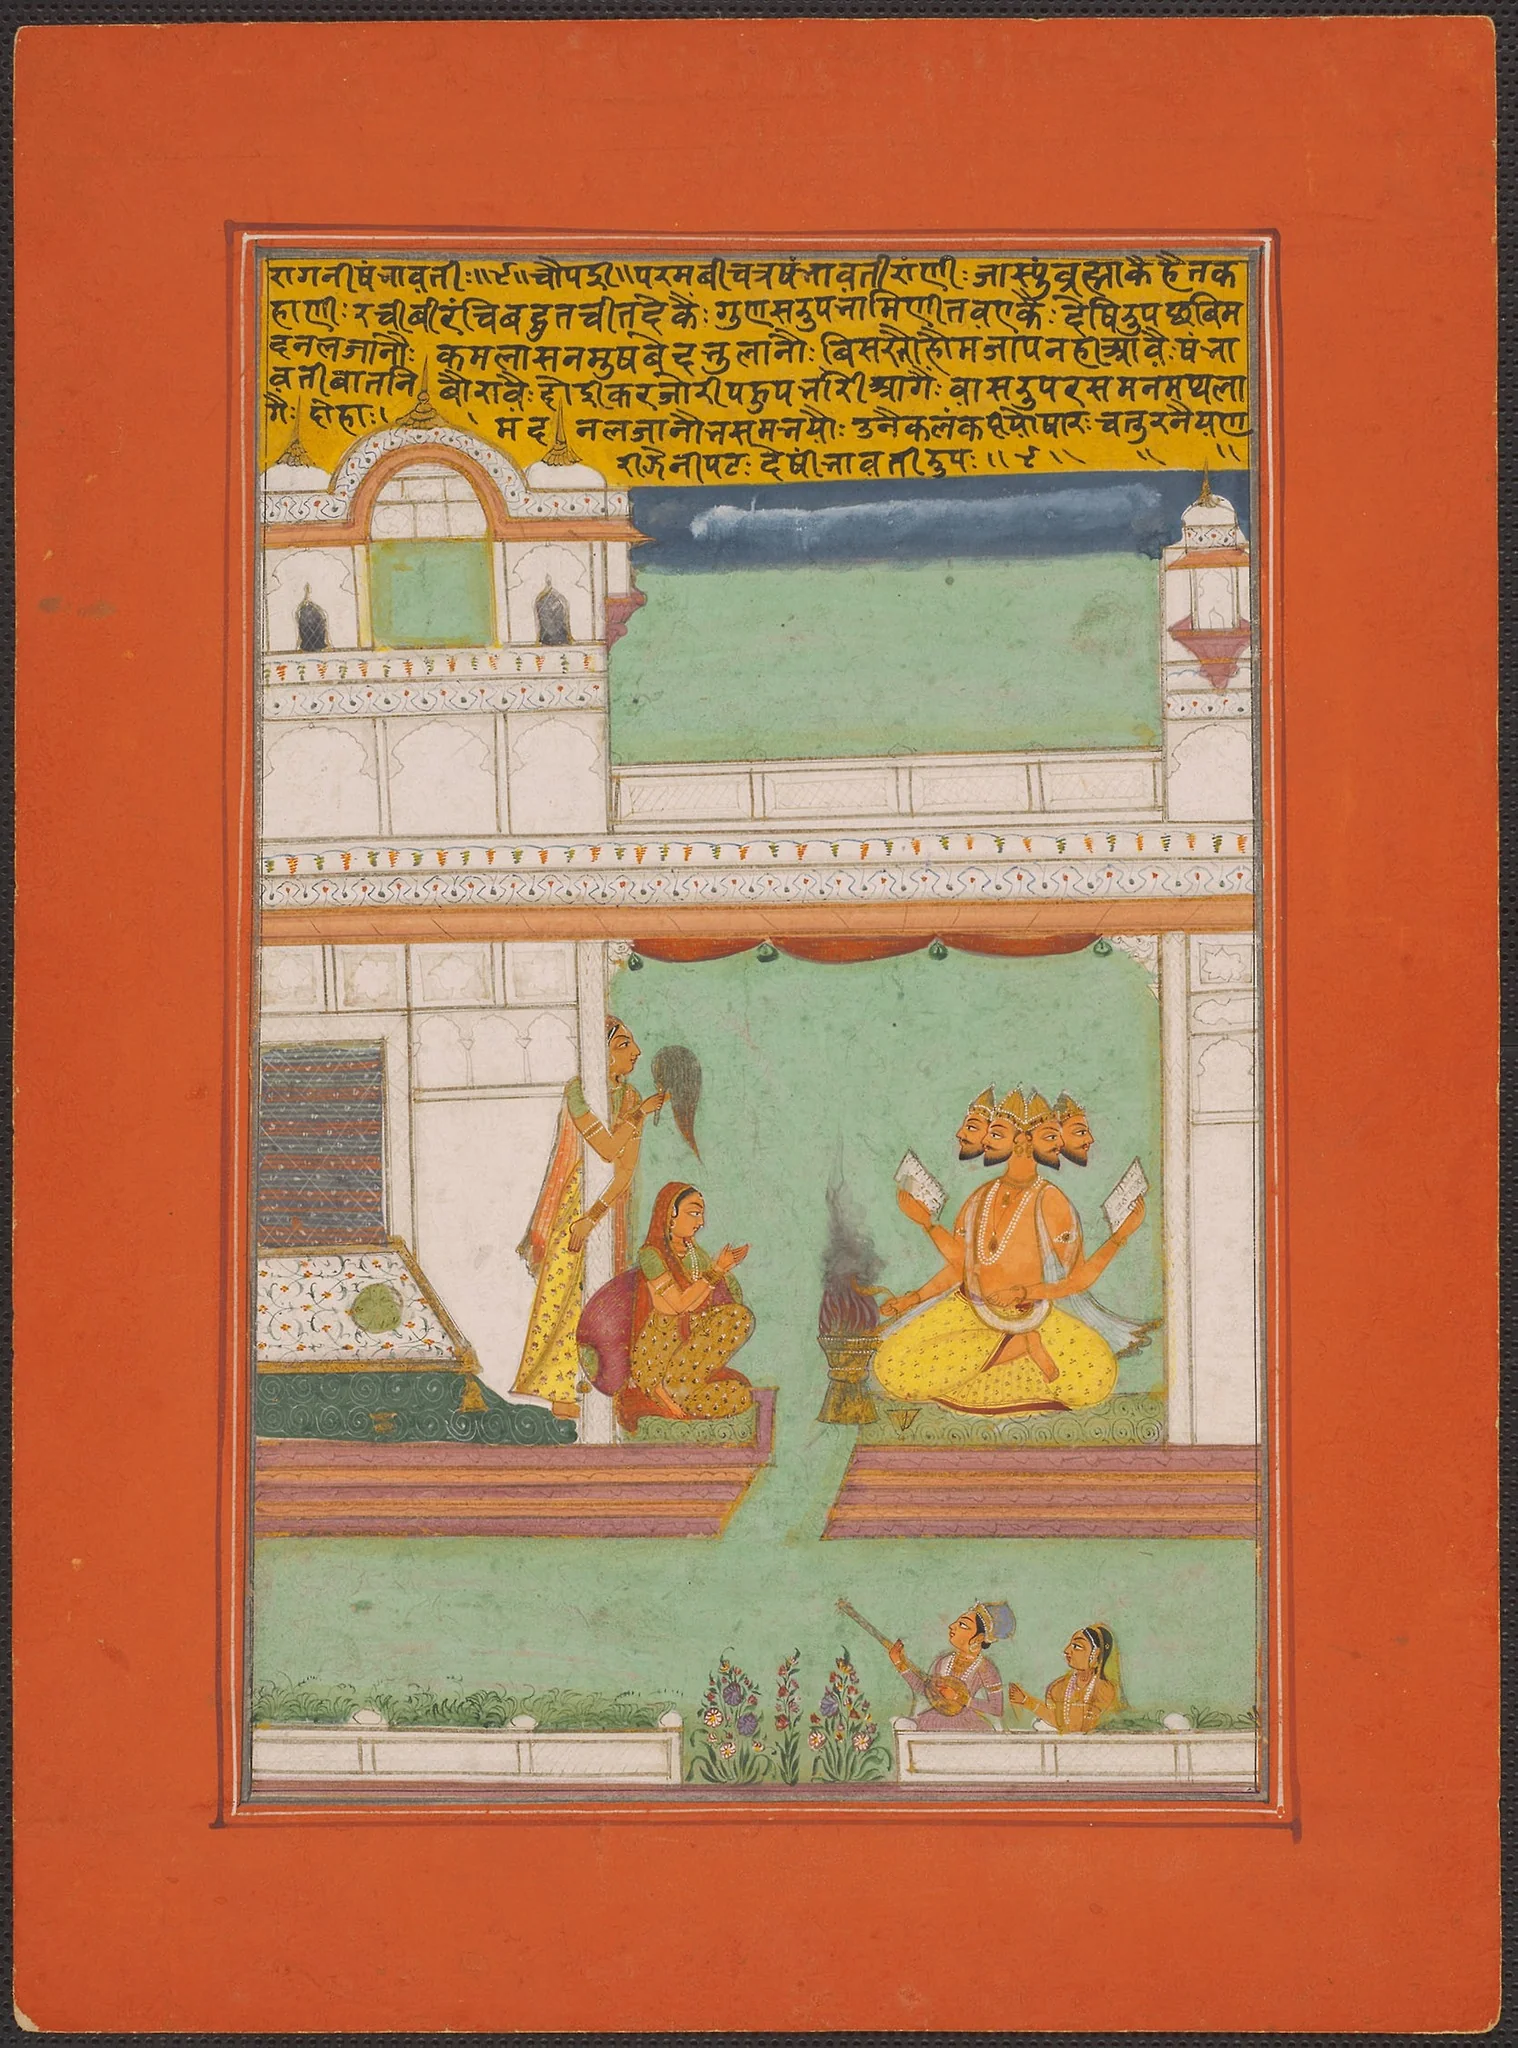 रागनीषंनावती:॥९॥चौपइी॥परमबीचत्रषंनावतीरांणी: जास्युंब्रह्माकैहैतक
हाणी: रचीबीरंचिबद्धुतचीतदेकै: गुणसरुपनामिणीतवएकै: देषिरुपछबिम
दनलजांनौ: कमलासनमुषबेदत्तुलांनौ: बिसरनौहोमजापनहीआवै: षंना
वतीबातनि बौरावै: होइीकरजोरीपहुपनरिआगै: वासरुपरसमनमध्यला
गै: दोहा: । मदनलजानौनसमनयौ: उनैकलंक षार: चतुरनैयण
राजैनीपट: देषीनावतीरुप: ॥९॥